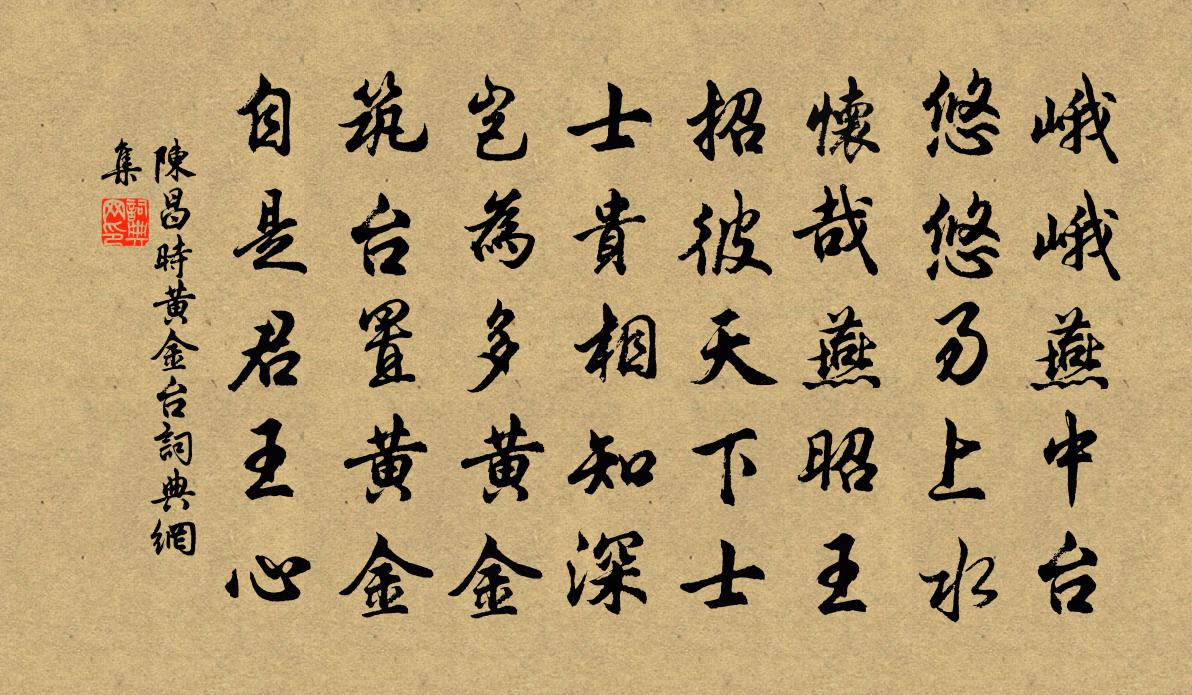 峨峨燕中台
悠悠易上水
懷哉燕昭王
招彼天下士
士貴相知深
豈為多黄金
筑台置黄金
自是君王心
陳昌時黄金台詞典網
集
詞典
网印